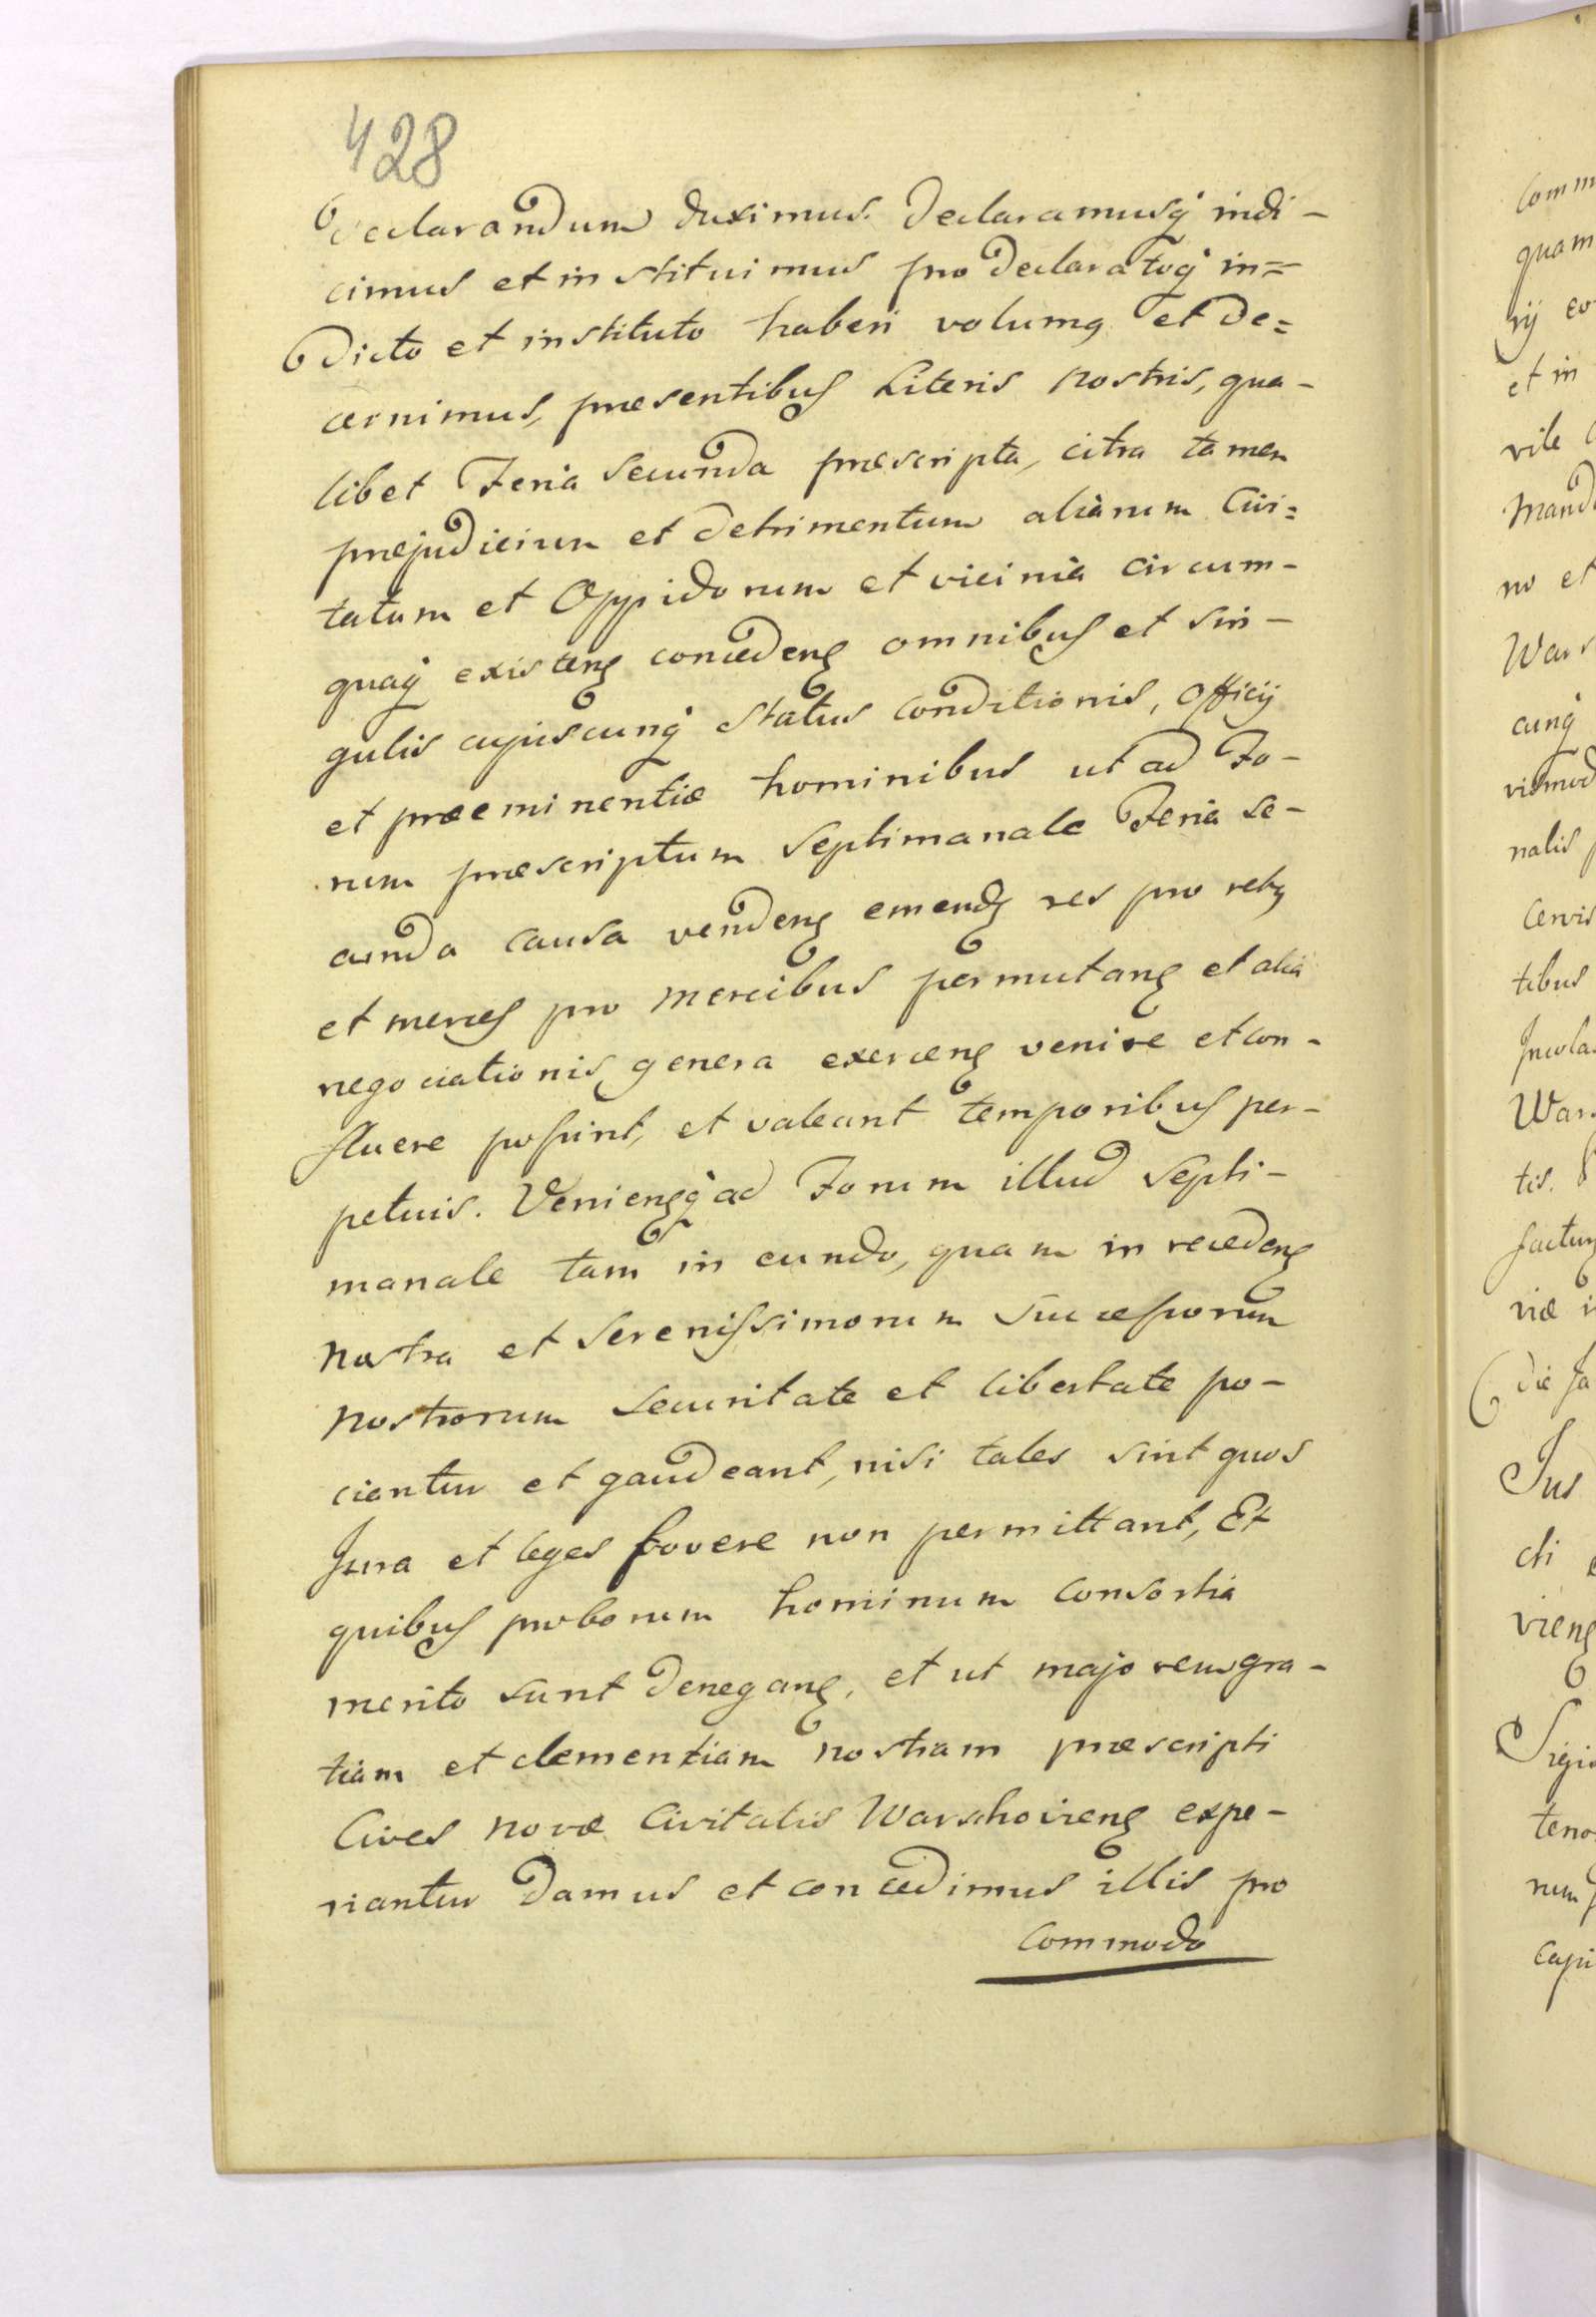 428
declarandum duximus. Declaramusq indi-
cimus et instituimus pro Declaratoq in=
dicto et instituto haberi volumq et de=
cernimus, præsentibus Literis nostris, qua-
libet Feria Secunda præscripta, citra tamen
præjudicium et detrimentum aliarum Civi=
tatum et Oppidorum et vicinia circum-
quaq existenę concedenę omnibus et sin-
gulis cujuscunq status conditionis, officij
et præeminentiæ hominibus ut ad Fo-
rum præscriptum Septimanale Feria Se-
cunda causa vendenę emendę res pro rebq
et merces pro mercibus permutanę et alia
negociationis genera exercenę venire et con-
fluere possint, et valeant temporibus per-
petuis. Venienęq ad Forum illud Septi-
manale tam in eundo, quam in recedenę
nostra et Serenissimorum Successorum
nostrorum securitate et libertate po-
ciantur et gaudeant, nisi tales sint quos
Jura et leges fovere non permittant, Et
quibus proborum hominum consortia
merito sunt deneganę, et ut majorem gra-
tiam et clementiam nostram præscripti
Cives novæ Civitatis Warschovienę expe-
riantur Damus et concedimus illis pro
commodo
Comm
quam
rij
et in
vile
Mand
no et
cunq
nalis
tibus
tis.
viæ
Jus
cti
vienę
teno
rum